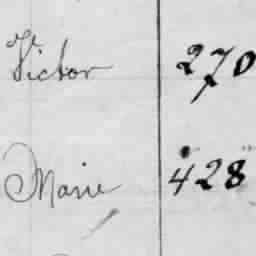 Victor 270
Marie 428